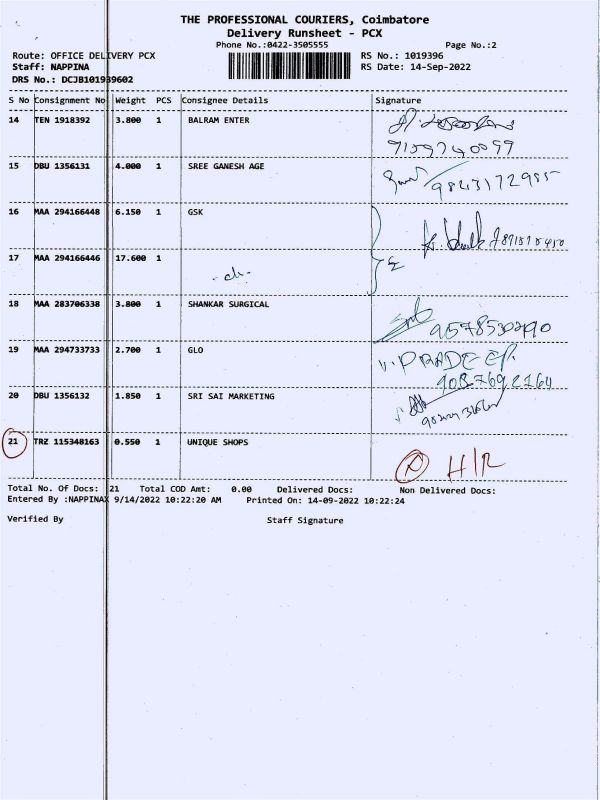 THE PROFESSIONAL COURIERS, Coimbatore
Delivery Runsheet - PCX
Phone No.:0422-3505555 Page No.:2
Route: OFFICE DELIVERY PCX RS No.: 1019396
Staff: NAPPINA RS Date: 14-Sep-2022
DRS No.: DCJB101939602
S No Consignment No Weight PCS Consignee Details Signature
14 TEN 1918392 3.800 1 BALRAM ENTER
9159740099
15 DBU 1356131 4.000 1 SREE GANESH AGE
9843172985
16 MAA 294166448 6.150 1 GSK
17 MAA 294166446 17.600 1
18 MAA 283706338 3.800 1 SHANKAR SURGICAL
19 MAA 294733733 2.700 1 GLO
PRADEEP.
20 DBU 1356132 1.850 1 SRI SAI MARKETING
21 TRZ 115348163 0.550 1 UNIQUE SHOPS
H/R
Total No. Of Docs: 21 Total COD Amt: 0.00 Delivered Docs: Non Delivered Docs:
Entered By :NAPPINAX 9/14/2022 10:22:20 AM Printed On: 14-09-2022 10:22:24
Verified By Staff Signature